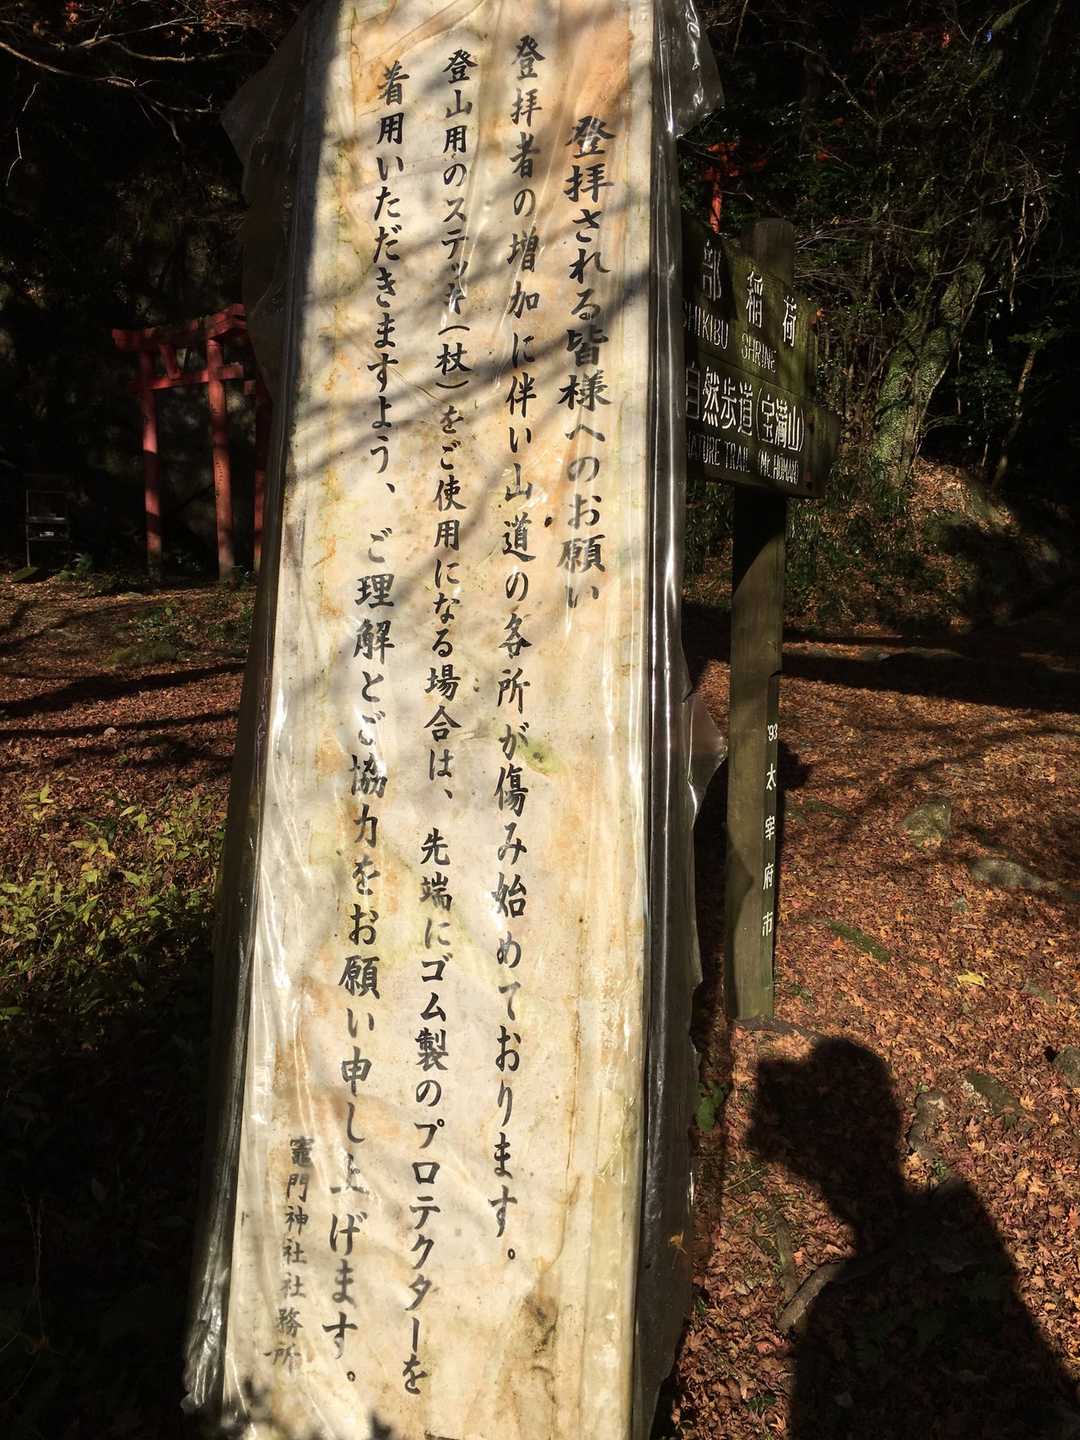 登拝される皆様へのお願い
登拝者の増加に伴い山道の各所が傷み始めております。
登山用のステッキ(杖)をご使用になる場合は、先端にゴム製のプロテクターを
着用いただきますよう、ご理解とご協力をお願い申し上げます。
竈門神社社務所
部稲荷
SHIKIBU SHRINE
自然歩道(宝満山)
NATURE TRAIL (Mt. HOMAN)
'93 太宰府市